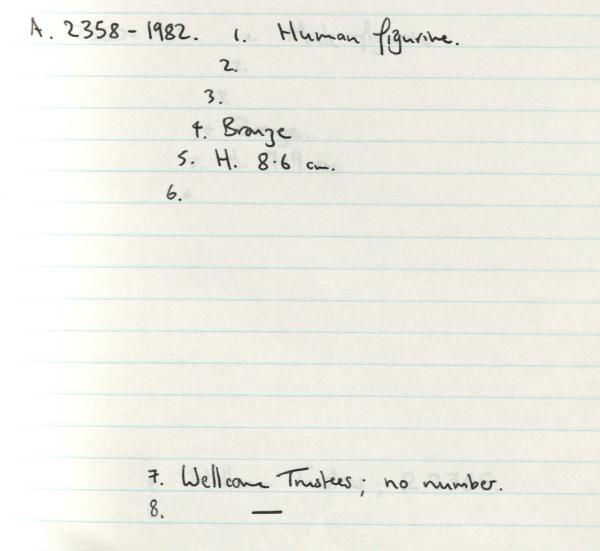 A. 2358 - 1982. 1. Human figurine.
2.
3.
4. Bronze
5. H. 8.6 cm.
6.
7. Wellcome Trustees; no number.
8. —